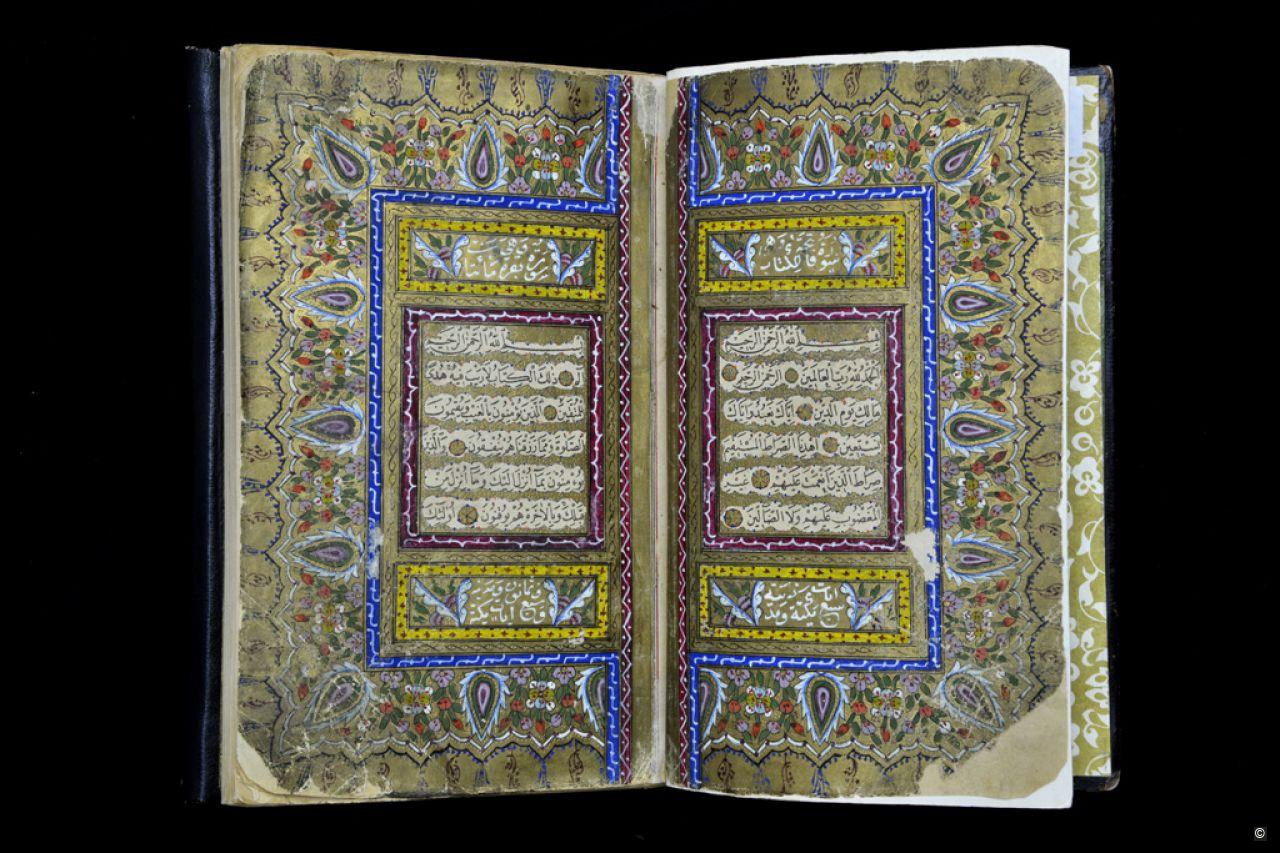 سورة فاتحة الكتاب
بسم الله الرحمن الرحيم
الحمد لله رب العالمين الرحمن الرحيم
مالك يوم الدين اياك نعبد واياك
نستعين اهدنا الصراط المستقيم
صراط الذين انعمت عليهم غير
المغضوب عليهم ولا الضالين
سبع ايات مكية ومدنية
سورة بقرة مائتا
بسم الله الرحمن الرحيم
الم ذلك الكتاب لا ريب فيه هدى
للمتقين الذين يؤمنون بالغيب ويقيمون
الصلوة ومما رزقناهم ينفقون والذين
يؤمنون بما انزل اليك وما انزل من
قبلك وبالاخرة هم يوقنون اولئك
©